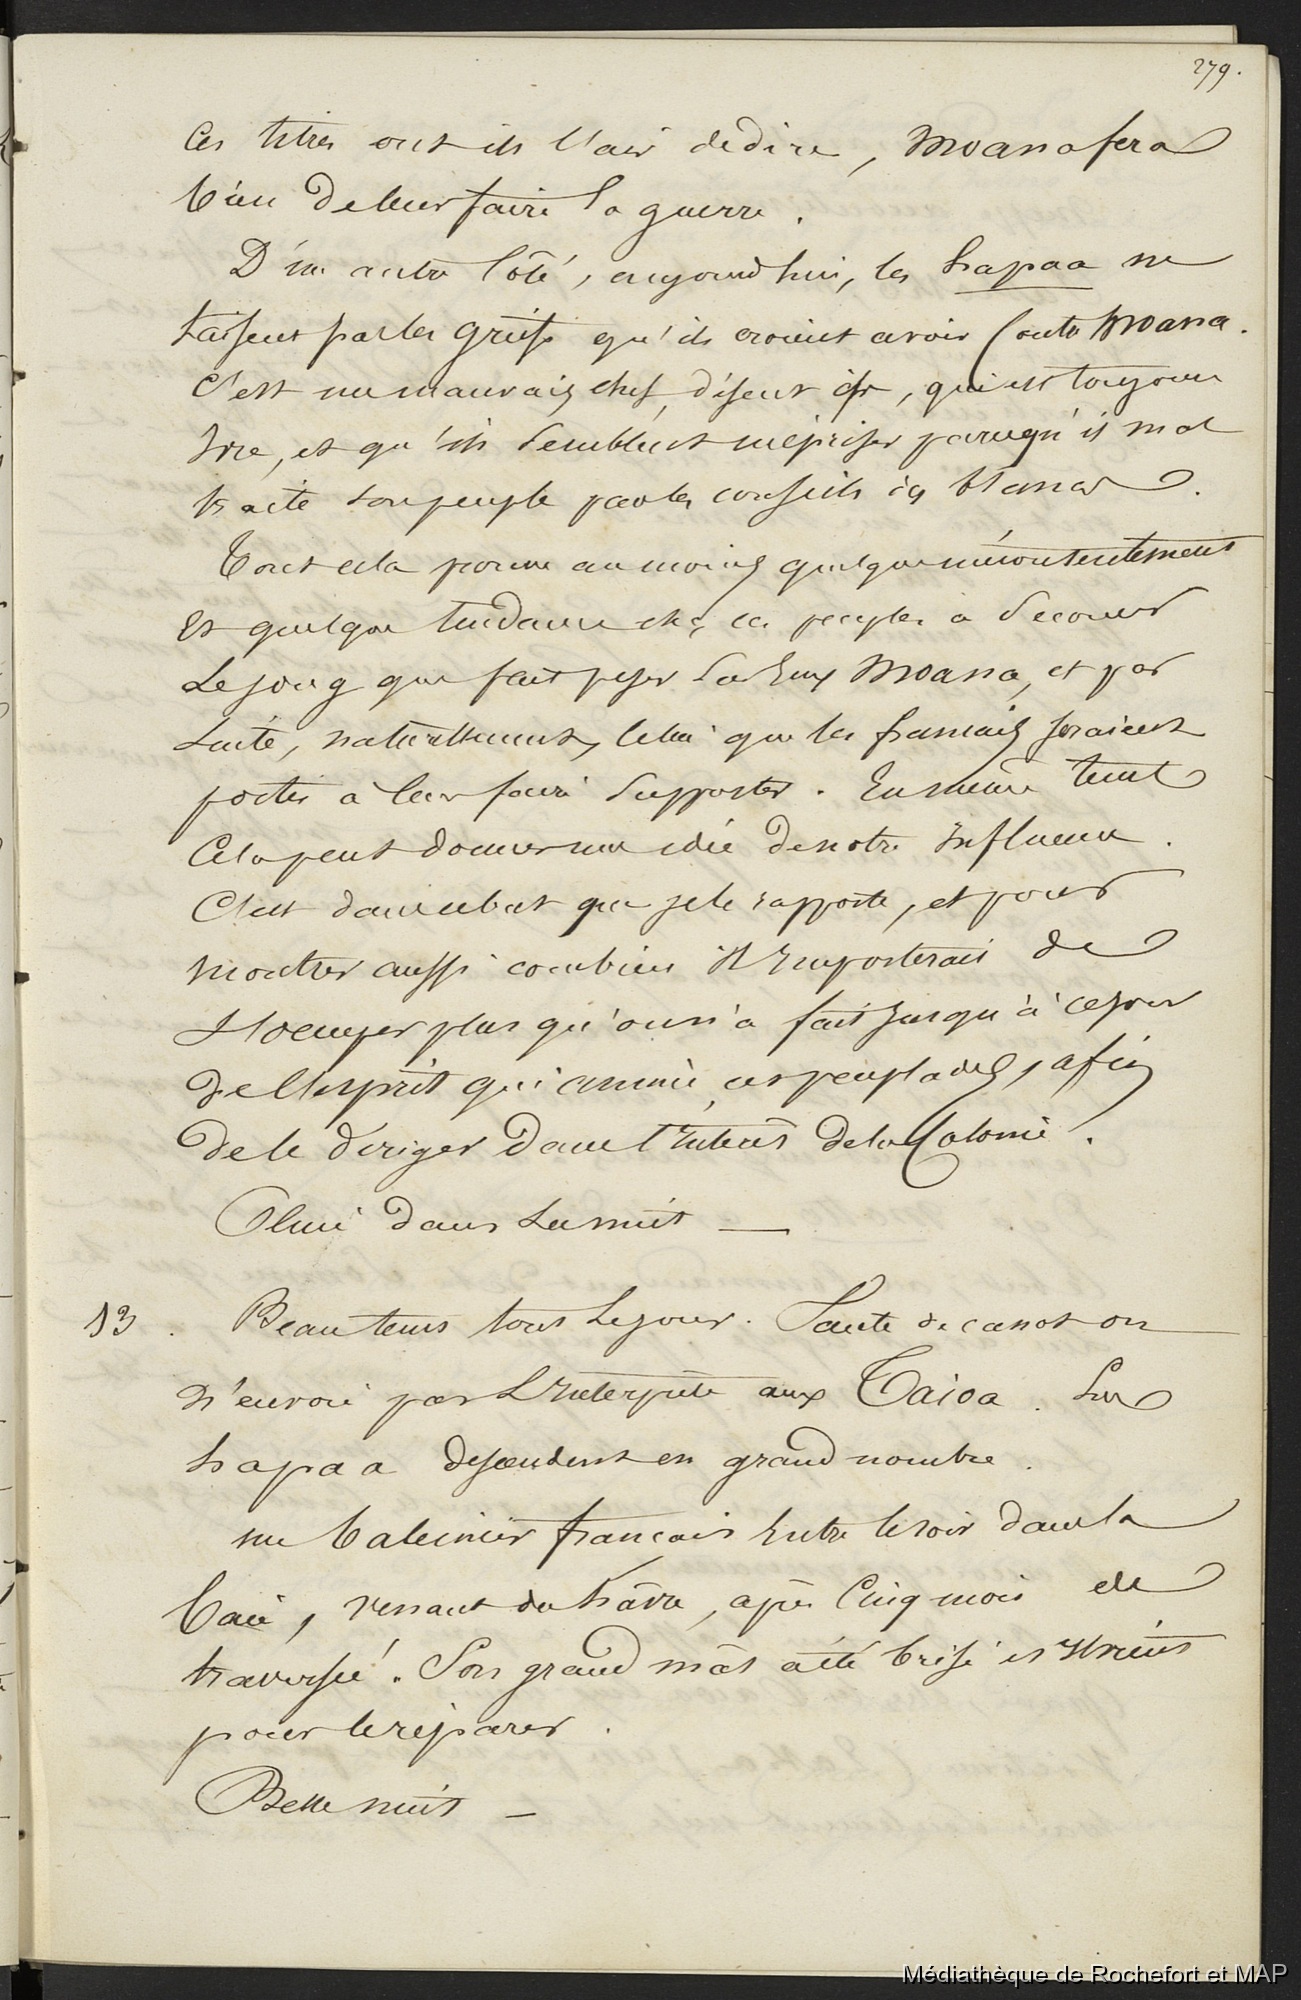 279.
Ces titres ont ils l'air de dire, Moana fera
bien de leur faire la guerre.
D'un autre côté, aujourd'hui, les hapaa ne
taisent pas les griefs qu'ils croient avoir contre Moana.
C'est un mauvais chef, disent ils, qui est toujours
ivre, et qu'ils semblent mépriser parcequ'il mal
traite son peuple par les conseils des blancs.
Tout cela prouve au moins quelque mécontentement
Et quelque tendance chez ces peuples à secouer
Le joug que fait peser sur Eux Moana, et par
suite, naturellement, celui que les français seraient
portés à leur faire supporter. En même tems
Cela peut donner une idée de notre influence.
C'est dans ce but que je le rapporte, et pour
montrer aussi combien il Importerait de
s'occuper plus qu'on n'a fait jusqu'à ce jour
de l'esprit qui anime ces peuplades, afin
de le diriger dans l'Intérêt de la Colonie.
Pluie dans la nuit —
13. Beau tems tout le jour. Faute de canot on
n'envoie pas L'Interprète aux Taioa. Les
hapaa descendent en grand nombre.
un baleinier français Entre le soir dans la
baie, venant du hâvre, après Cinq mois de
traversée. Son grand mât a été brisé et Il vient
pour le réparer.
Belle nuit —
Médiathèque de Rochefort et MAP